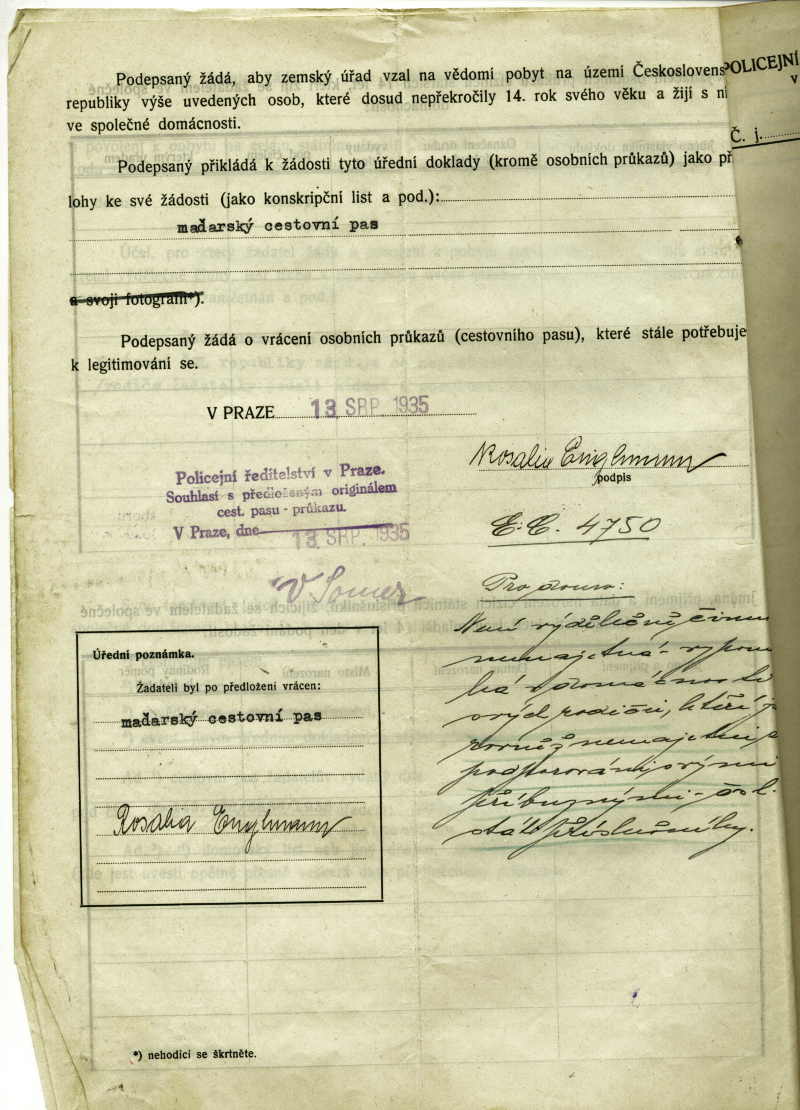 Podepsaný žádá, aby zemský úřad vzal na vědomí pobyt na území Českoslovens
republiky výše uvedených osob, které dosud nepřekročily 14. rok svého věku a žijí s ni
ve společné domácnosti.
POLICEJNÍ
V
Č. j.
Podepsaný přikládá k žádosti tyto úřední doklady (kromě osobních průkazů) jako př
lohy ke své žádosti (jako konskripční list a pod.):
maďarský cestovní pas
a svoji fotografii*).
Podepsaný žádá o vrácení osobních průkazů (cestovního pasu), které stále potřebuje
k legitimování se.
V PRAZE 13. SRP. 1935
Rosalia Englmann
podpis
Policejní ředitelství v Praze.
Souhlasí s předloženým originálem
cest. pasu - průkazu.
V Praze, dne 13. SRP. 1935
E. C. 4750
Není výdělečně činna
nemajetná
svých rodičů, kteří j
rovněž nemajetni a
podporováni svými
příbuznými - čsl.
stát. příslušníky.
Úřední poznámka.
Žadateli byl po předložení vrácen:
maďarský cestovní pas
Rosalia Englmann
*) nehodící se škrtněte.